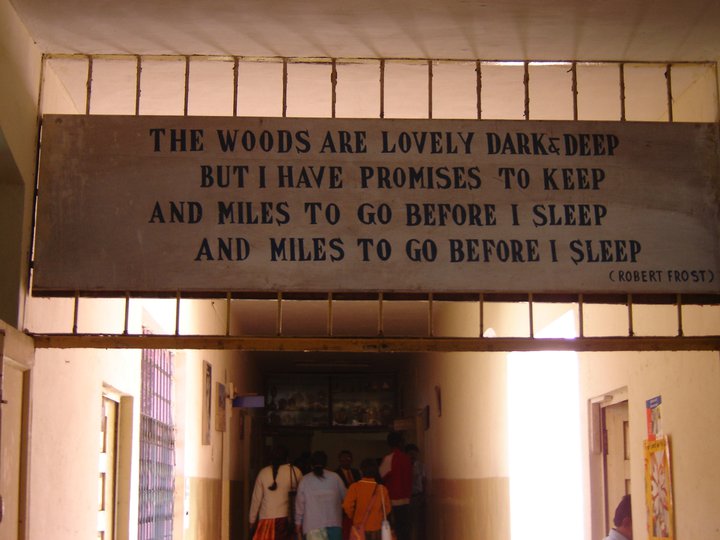 THE WOODS ARE LOVELY DARK & DEEP
BUT I HAVE PROMISES TO KEEP
AND MILES TO GO BEFORE I SLEEP
AND MILES TO GO BEFORE I SLEEP
(ROBERT FROST)